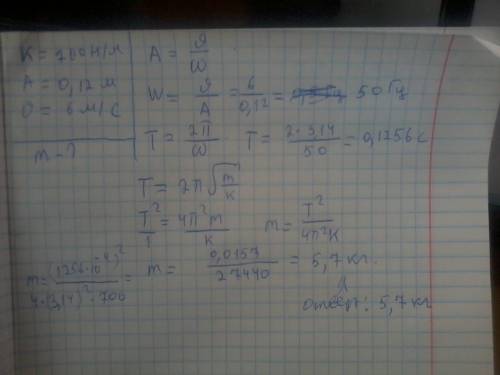 K = 700 Н/м
A = 0,12 м
υ = 6 м/с
m - ?
A = υ/W
W = υ/A = 6/0,12 = 50 Гц
T = 2π/W T = 2·3,14/50 = 0,1256 с
T = 2π√(m/K)
T²/1 = 4π²m/K m = T²/4π²K
m = (1256·10⁻⁴)²/4·(3,14)²·700 =
m = 0,0157/27440 = 5,7 кг.
ответ: 5,7 кг